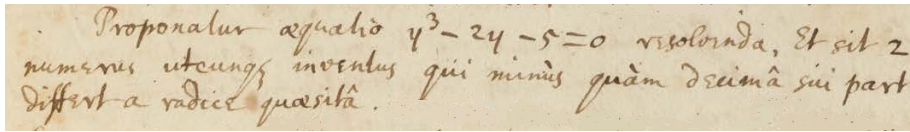 Proponatur æquatio y³ - 2y - 5 = 0 resolvenda, Et sit 2
numerus utcunq; inventus qui minùs quàm decimâ sui part
differt a radice quæsitâ.